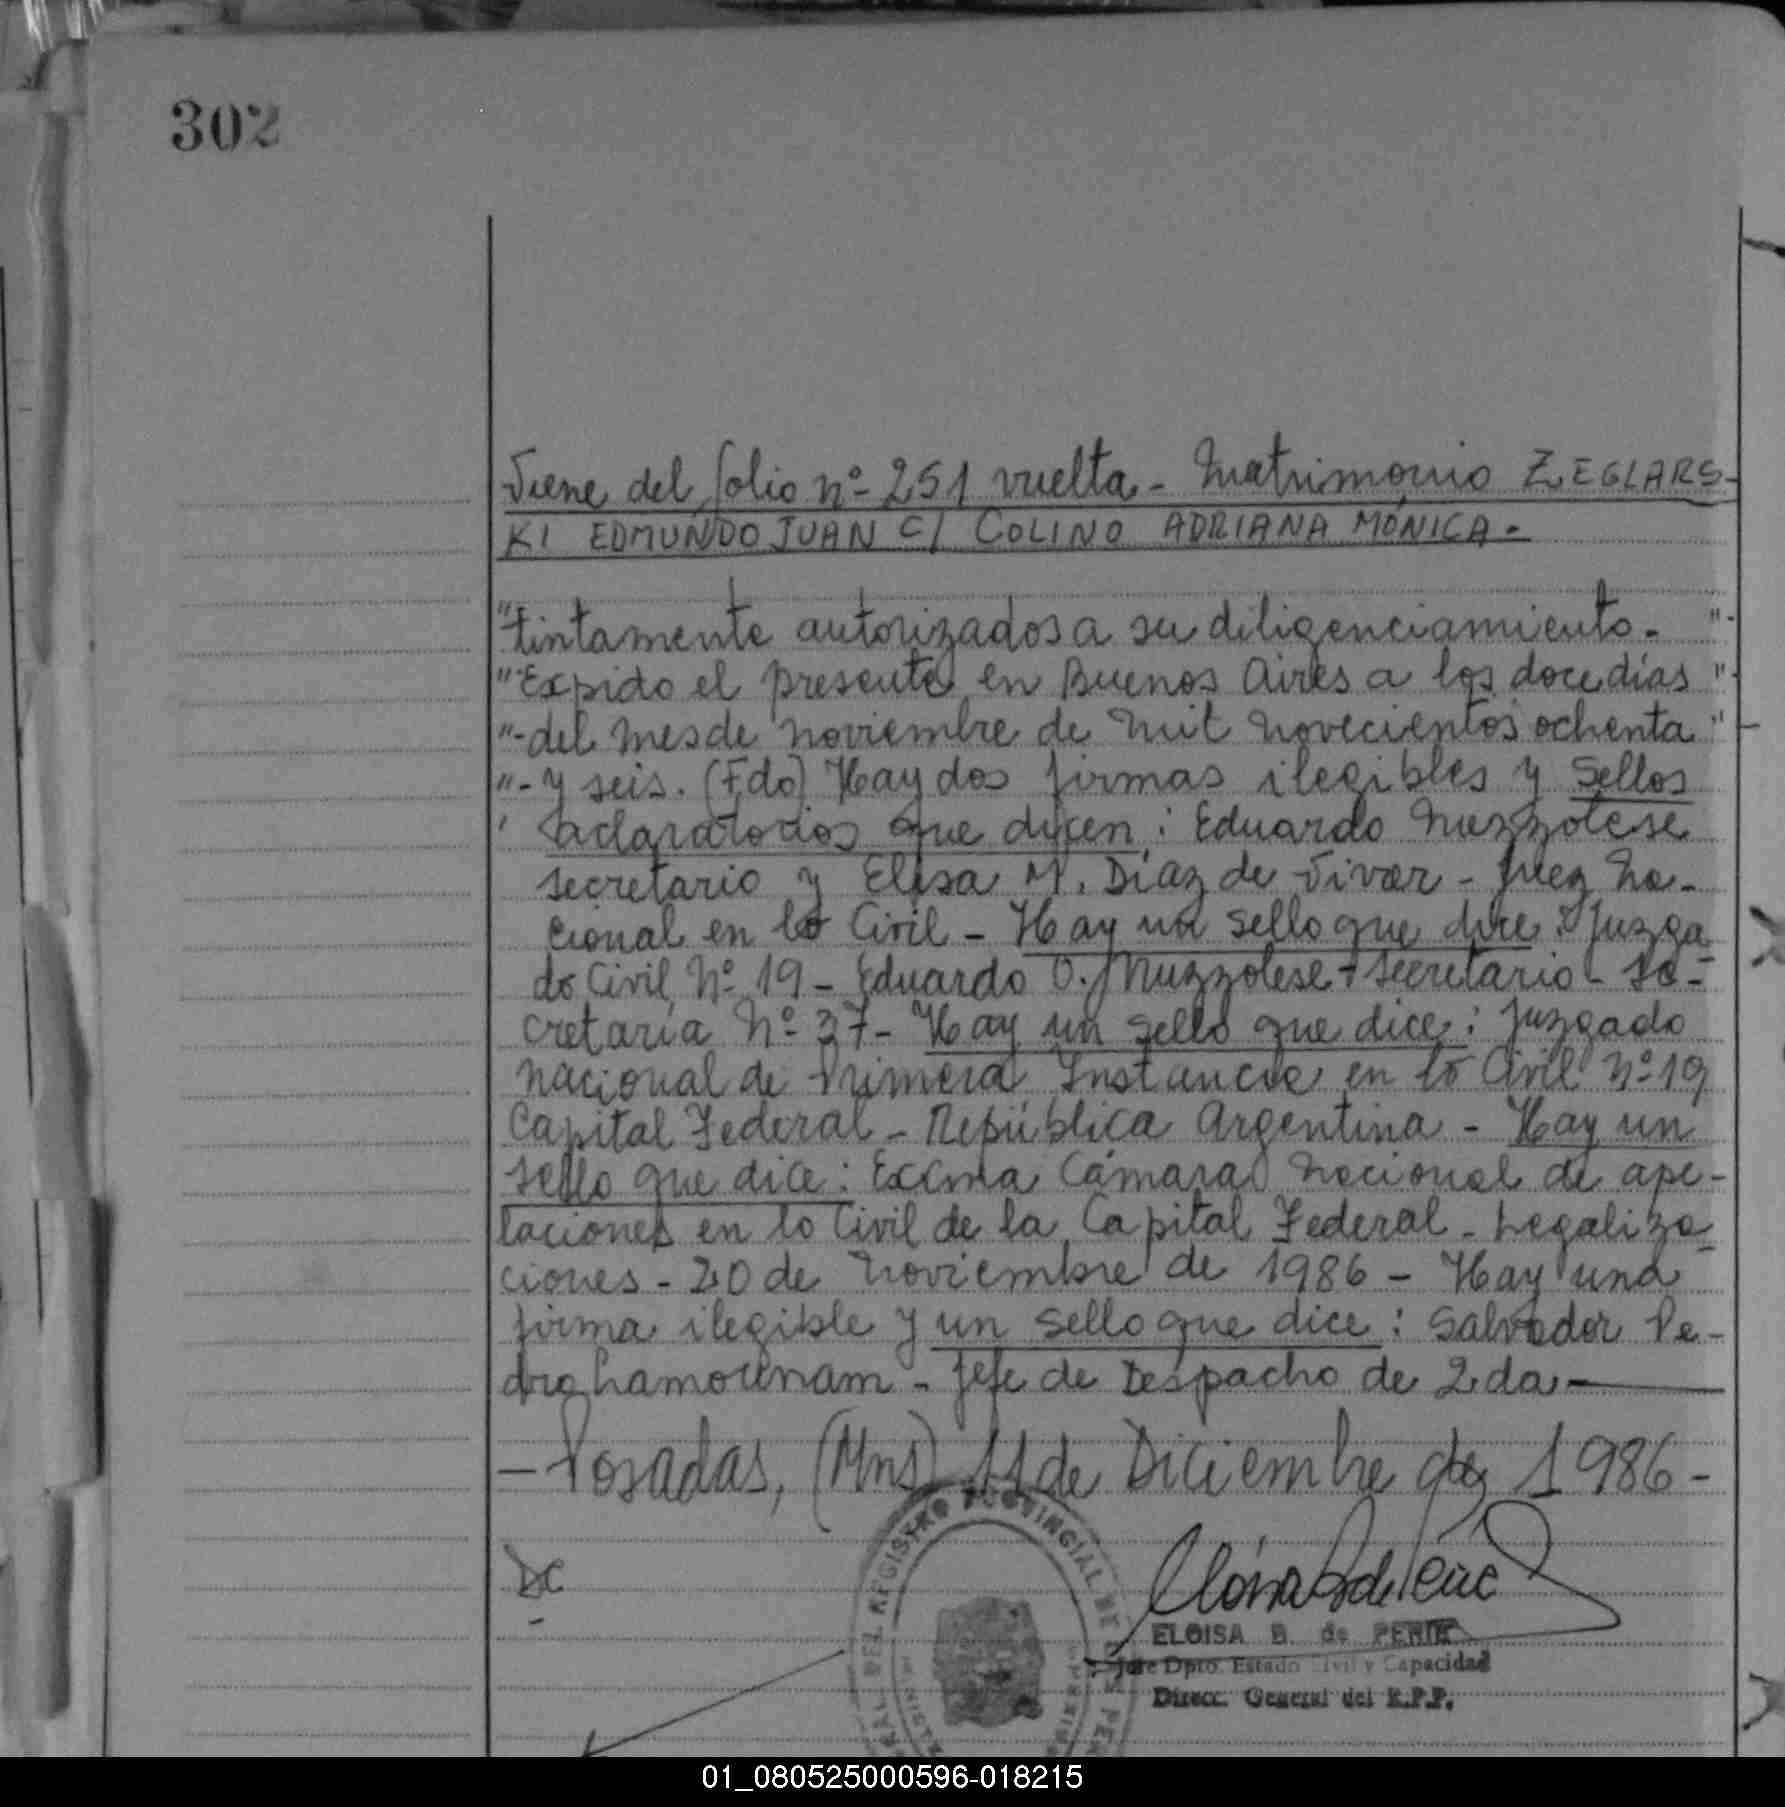 302
Viene del folio nº 251 vuelta - Matrimonio ZEGLARS-
KI EDMUNDO JUAN C/ COLINO ADRIANA MÓNICA.-
"tintamente autorizados a su diligenciamiento.- "-
"Expido el presente en Buenos Aires a los doce días "-
"-del mes de noviembre de mil novecientos ochenta "-
"-y seis. (Fdo) Hay dos firmas ilegibles y sellos
' aclaratorios que dicen: Eduardo Muzzolese
secretario y Elisa M. Díaz de Vivar - Juez Na-
cional en lo Civil - Hay un sello que dice: Juzga-
do Civil Nº 19 - Eduardo O. Muzzolese - Secretario - Se-
cretaría Nº 37 - Hay un sello que dice: Juzgado
Nacional de Primera Instancia en lo Civil Nº 19
Capital Federal - República Argentina - Hay un
sello que dice: Excma Cámara Nacional de ape-
laciones en lo Civil de la Capital Federal - Legaliza-
ciones - 20 de Noviembre de 1986 - Hay una
firma ilegible y un sello que dice: Salvador Pe-
dro - Jefe de Despacho de 2da -
- Posadas, (Mns) 11 de Diciembre de 1986 -
DEL REGISTRO PROVINCIAL DE
ELOISA B. de PERIE
Jefe Dpto. Estado Civil y Capacidad
Direcc. General del R.P.P.
01_080525000596-018215